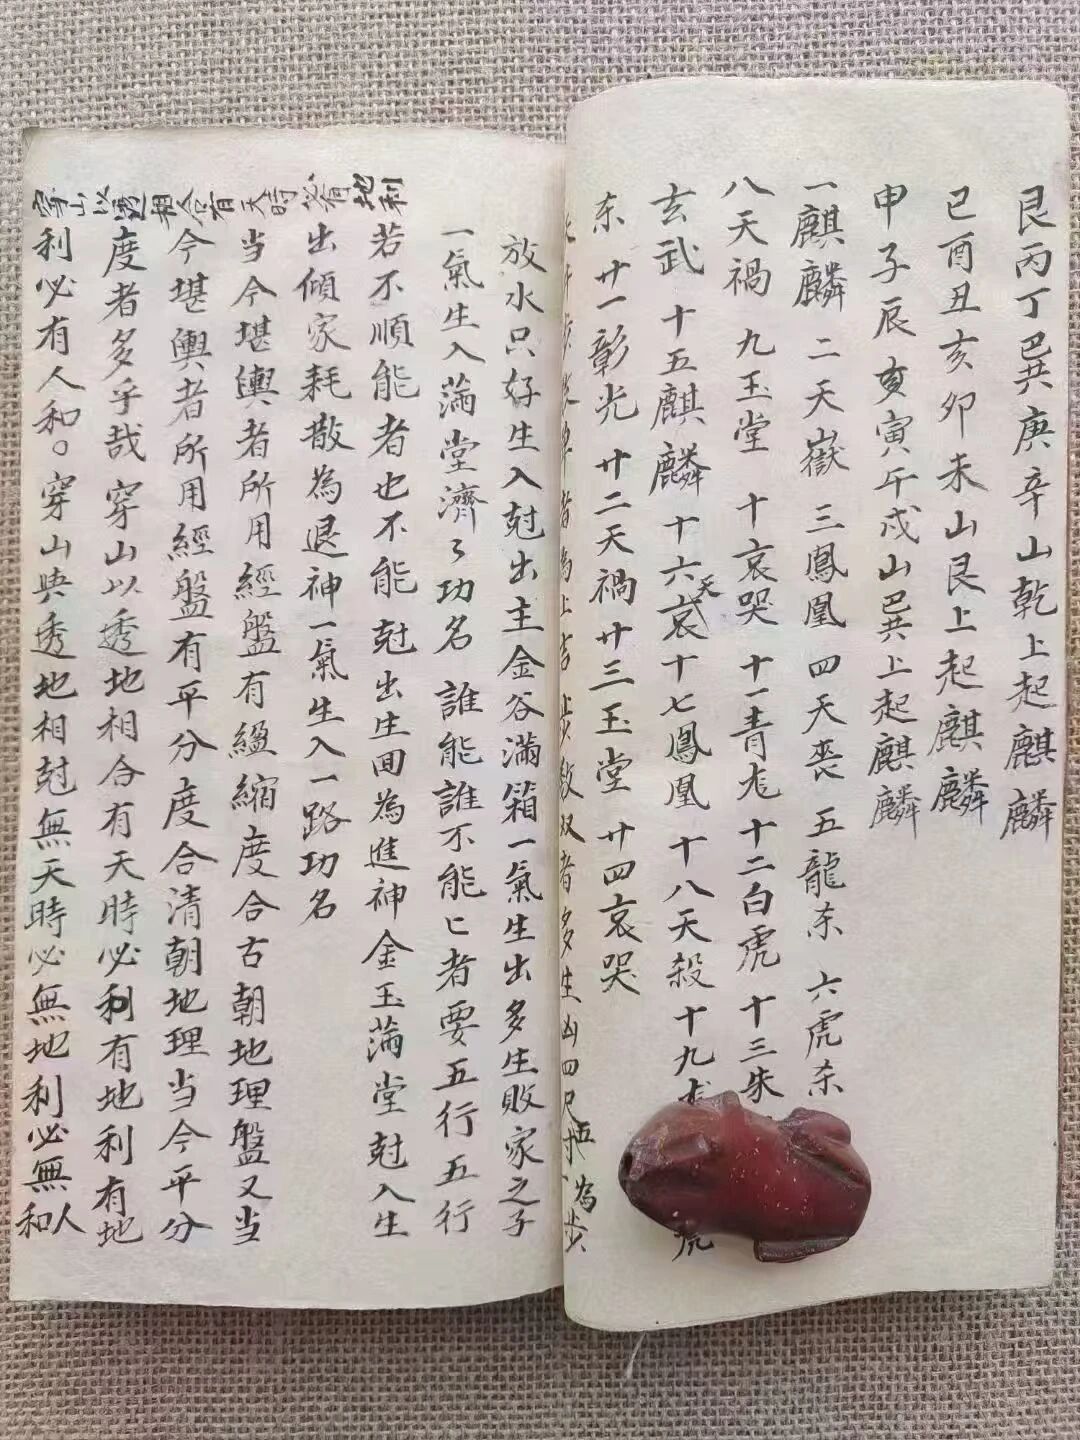 艮丙丁巽庚辛山乾上起麒麟
巳酉丑亥卯未山艮上起麒麟
申子辰亥寅午戌山巽上起麒麟
一麒麟 二天嶽 三鳳凰 四天喪 五龍杀 六虎杀
八天禍 九玉堂 十哀哭 十一青尨 十二白虎 十三朱
玄武 十五麒麟 十六天哀 十七鳳凰 十八天殺 十九 虎
杀 廿一彰光 廿二天禍 廿三玉堂 廿四哀哭
步数单者為上吉步数双者多生凶四尺五寸為步
放水只好生入尅出主金谷滿箱一氣生出多生敗家之子
一氣生入滿堂濟々功名 誰能誰不能匕者要五行五行
若不順能者也不能尅出生回為進神 金玉滿堂尅入生
出傾家耗散為退神一氣生入一路功名
当今堪輿者所用經盤有縕縮度合古朝地理盤又当
今堪輿者所用經盤有平分度合清朝地理当今平分
度者多乎哉 穿山以透地相合有天時必利有地利有地
利必有人和。穿山與透地相尅無天時必無地利必無人和
穿山以透地相合有天時必有地利